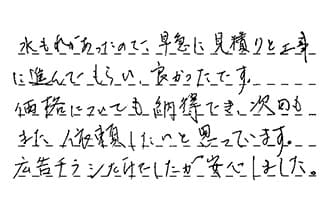 水もれがあったので、早急に見積りと工事
に進んでもらい、良かったです。
価格についても納得でき、次回も
また依頼したいと思っています。
広告チラシだけでしたが安心しました。